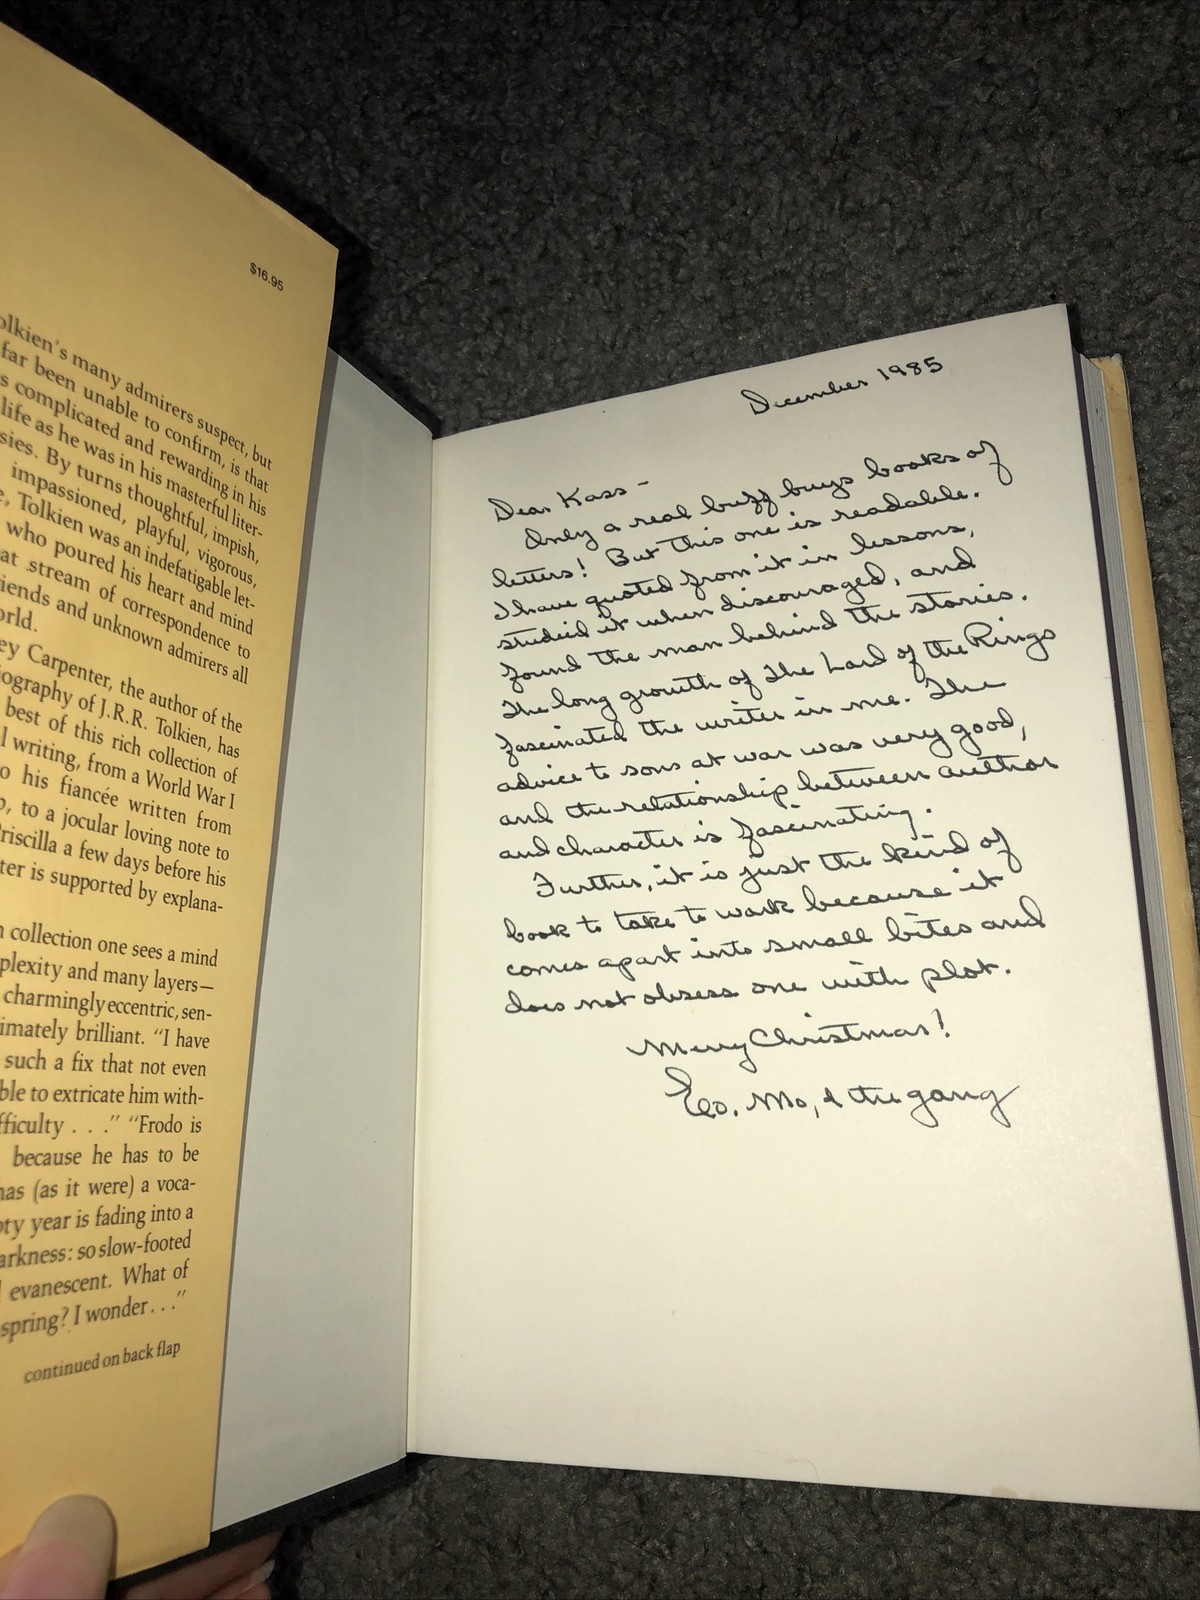 $16.95
olkien's many admirers suspect, but
far been unable to confirm, is that
s complicated and rewarding in his
life as he was in his masterful liter-
sies. By turns thoughtful, impish,
impassioned, playful, vigorous,
e, Tolkien was an indefatigable let-
who poured his heart and mind
at stream of correspondence to
iends and unknown admirers all
orld.
ey Carpenter, the author of the
iography of J.R.R. Tolkien, has
best of this rich collection of
l writing, from a World War I
o his fiancée written from
p, to a jocular loving note to
Priscilla a few days before his
ter is supported by explana-
n collection one sees a mind
plexity and many layers—
charmingly eccentric, sen-
imately brilliant. "I have
such a fix that not even
ble to extricate him with-
fficulty . . ." "Frodo is
because he has to be
has (as it were) a voca-
pty year is fading into a
arkness: so slow-footed
l evanescent. What of
spring? I wonder . . ."
continued on back flap
December 1985
Dear Kass -
Only a real buff buys books of
letters! But this one is readable.
I have quoted from it in lessons,
studied it when discouraged, and
found the man behind the stories.
The long growth of The Lord of the Rings
fascinated the writer in me. The
advice to sons at war was very good,
and the relationship between author
and character is fascinating.
Further, it is just the kind of
book to take to work because it
comes apart into small bites and
does not obsess one with plot.
Merry Christmas!
Mo, & the gang